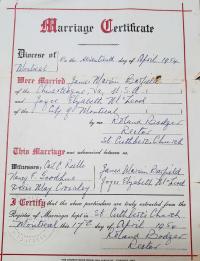 Marriage Certificate
Diocese of On the seventeenth day of April 1954
Montreal
Were Married James Marvin Barfield
of Chincoteague, Va, U.S.A.
and Joyce Elizabeth McLeod
of City of Montreal
by me Roland Bodger
Rector
St Cuthbert's Church
This Marriage was solemnized between us
Witnesses: James Marvin Barfield
Joyce Elizabeth McLeod
I Certify that the above particulars are truly extracted from the
Register of Marriages kept in St Cuthbert's Church
Montreal this 17th day of April 1954
Roland Bodger
Rector